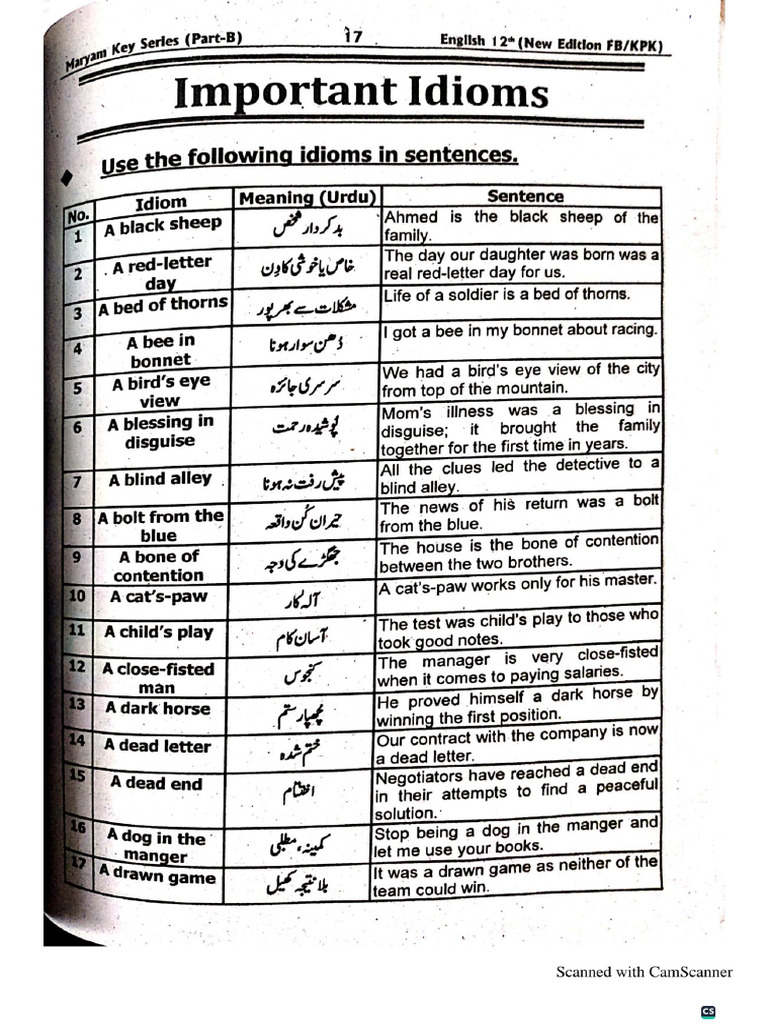 Maryam Key Series (Part-B) 17 English 12th (New Edition FB/KPK)
Important Idioms
Use the following idioms in sentences.
No. Idiom Meaning (Urdu) Sentence
1 A black sheep بد کردار شخص Ahmed is the black sheep of the
family.
2 A red-letter
day خاص یا خوشی کا دن The day our daughter was born was a
real red-letter day for us.
3 A bed of thorns مشکلات سے بھر پور Life of a soldier is a bed of thorns.
4 A bee in
bonnet دُھن سوار ہونا I got a bee in my bonnet about racing.
5 A bird's eye
view سرسری جائزہ We had a bird's eye view of the city
from top of the mountain.
6 A blessing in
disguise پوشیدہ رحمت Mom's illness was a blessing in
disguise; it brought the family
together for the first time in years.
7 A blind alley پیش رفت نہ ہونا All the clues led the detective to a
blind alley.
8 A bolt from the
blue حیران کُن واقعہ The news of his return was a bolt
from the blue.
9 A bone of
contention جھگڑے کی وجہ The house is the bone of contention
between the two brothers.
10 A cat's-paw آلہ کار A cat's-paw works only for his master.
11 A child's play آسان کام The test was child's play to those who
took good notes.
12 A close-fisted
man کنجوس The manager is very close-fisted
when it comes to paying salaries.
13 A dark horse چھپا رستم He proved himself a dark horse by
winning the first position.
14 A dead letter ختم شدہ Our contract with the company is now
a dead letter.
15 A dead end اختتام Negotiators have reached a dead end
in their attempts to find a peaceful
solution.
16 A dog in the
manger کمینہ، مطلبی Stop being a dog in the manger and
let me use your books.
17 A drawn game بلا نتیجہ کھیل It was a drawn game as neither of the
team could win.
Scanned with CamScanner
CS